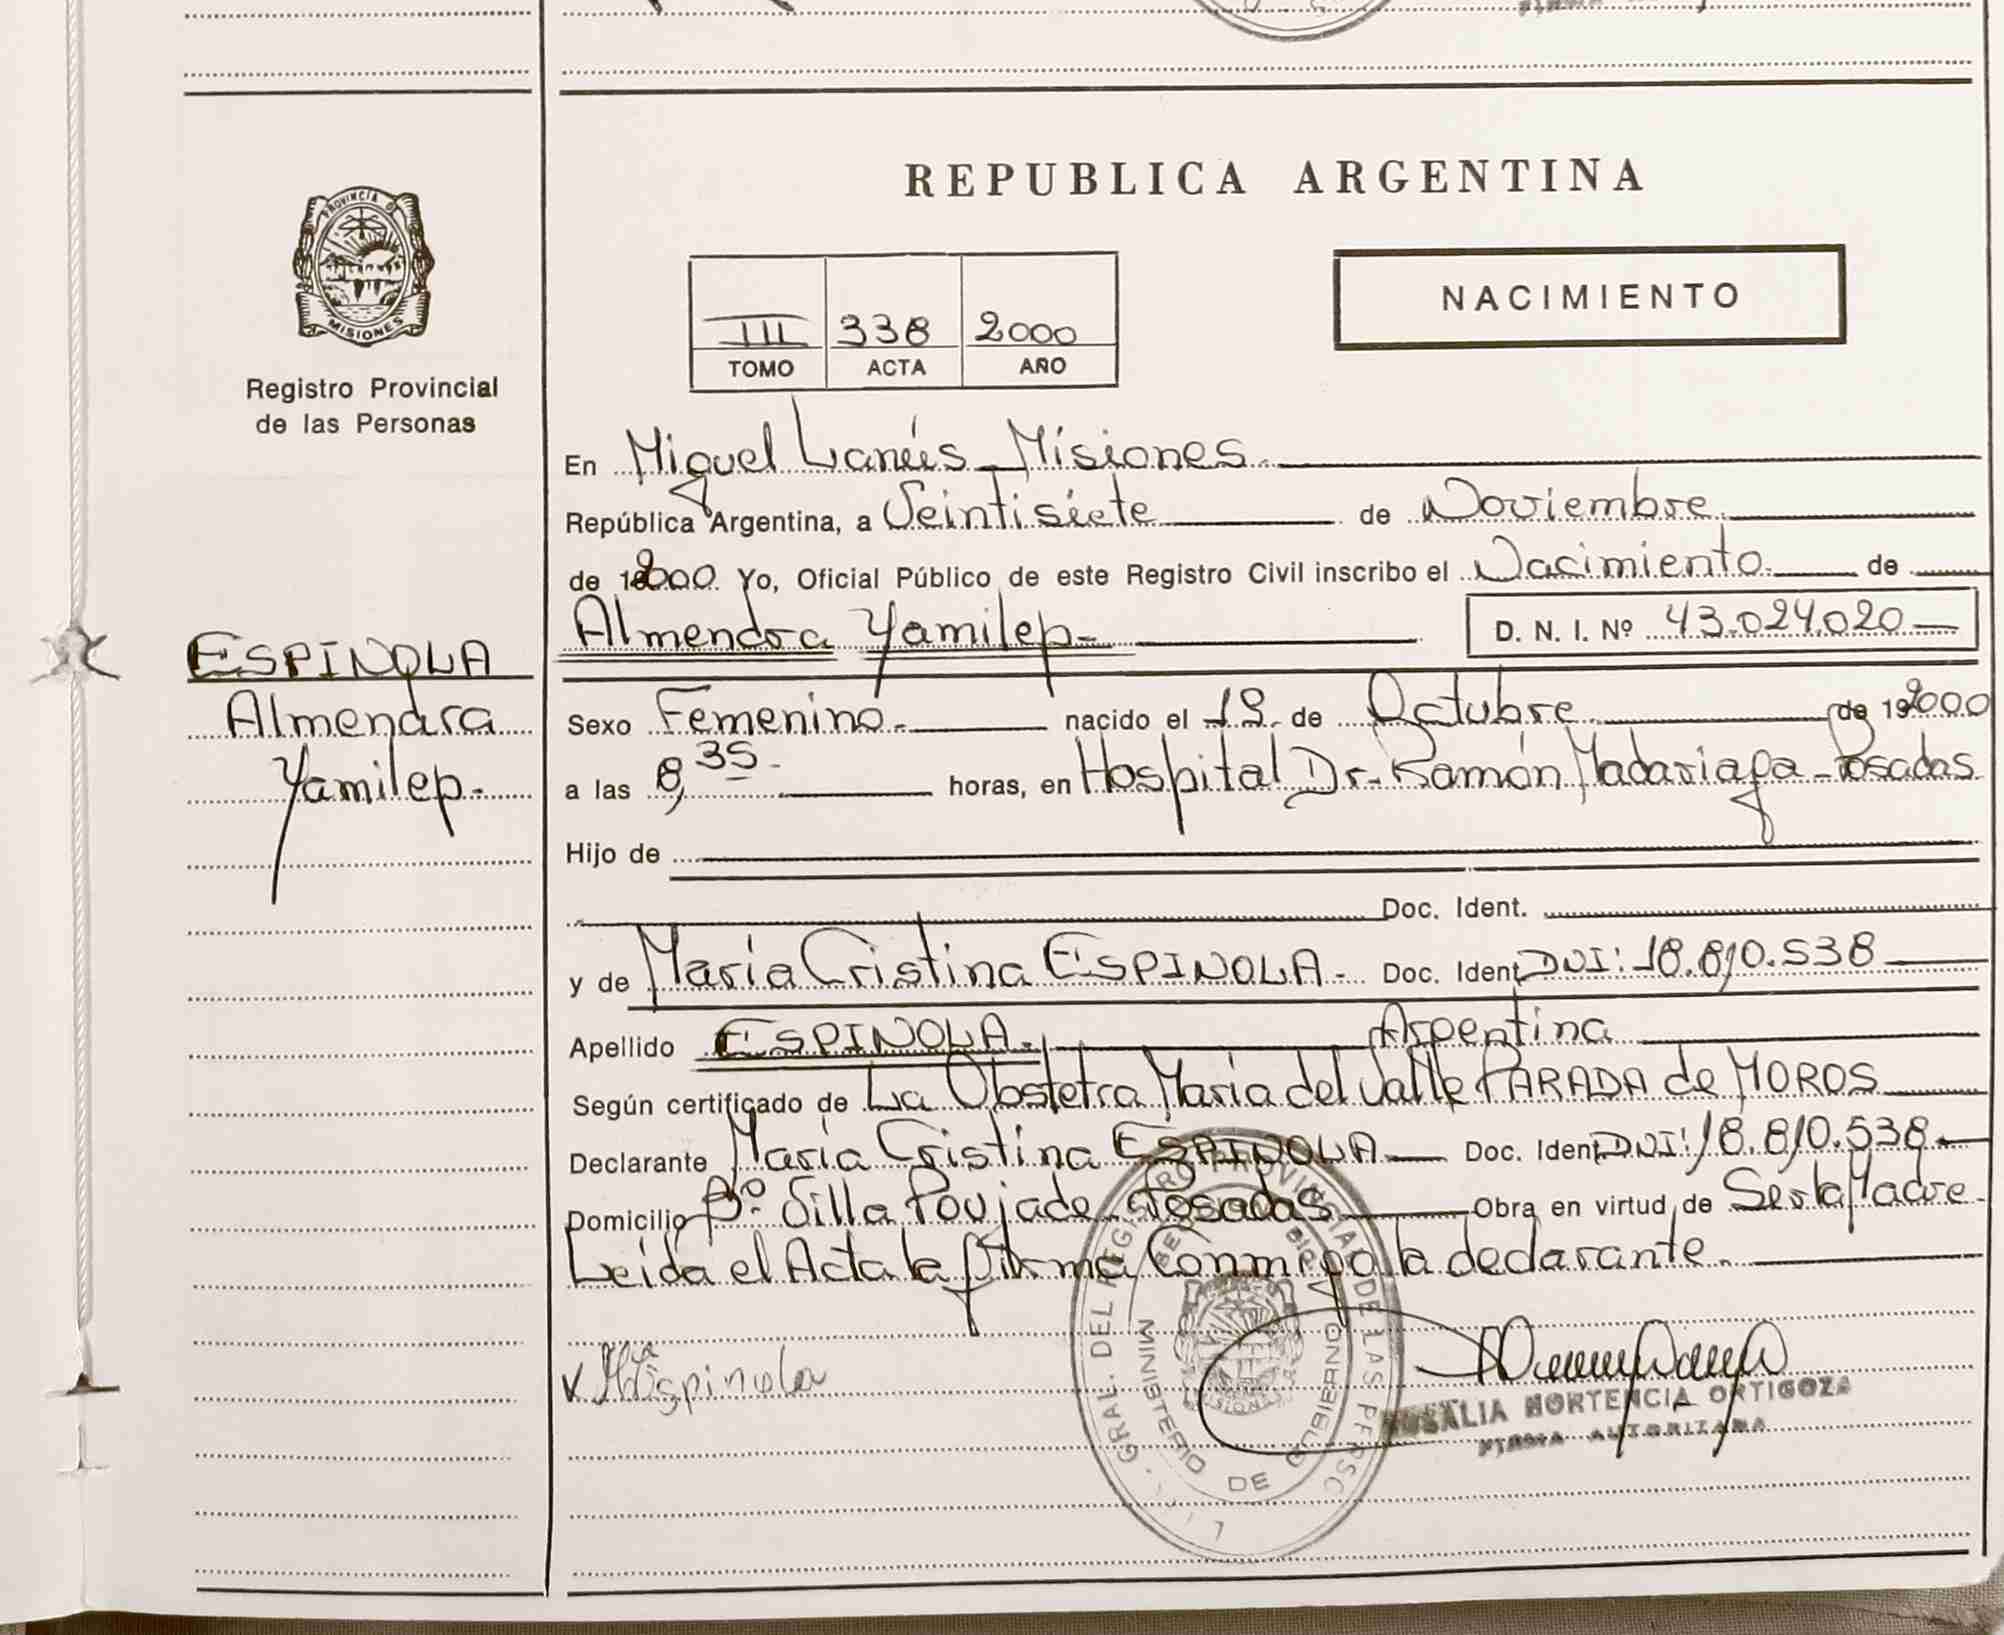 REPUBLICA ARGENTINA
PROVINCIA D
MISIONES
Registro Provincial
de las Personas
III 338 2000
TOMO ACTA AÑO
NACIMIENTO
En Miguel Lanús - Misiones.
República Argentina, a Veintisiete de Noviembre.
de 2000. Yo, Oficial Público de este Registro Civil inscribo el Nacimiento. de
Almendra Yamilep.- D. N. I. Nº 43.024.020
ESPINOLA
Almendra
Yamilep.-
Sexo Femenino.- nacido el 19. de Octubre de 2000
a las 8,35.- horas, en Hospital Dr. Ramón Madariaga - Posadas
Hijo de
Doc. Ident.
y de María Cristina ESPINOLA.- Doc. Ident DNI: 18.810.538
Apellido ESPINOLA.- Argentina
Según certificado de La Obstetra María del Valle PARADA de MOROS
Declarante María Cristina ESPINOLA Doc. Ident DNI: 18.810.538.-
Domicilio Bº. Villa Poujade - Posadas Obra en virtud de Ser la Madre.
Leida el Acta la firma Conmigo la declarante.
Mª Espinola
ROSALIA HORTENCIA ORTIGOZA
FIRMA AUTORIZADA
GRAL. DEL REGISTRO PROVINCIAL DE LAS PERSO
MINISTERIO DE GOBIERNO